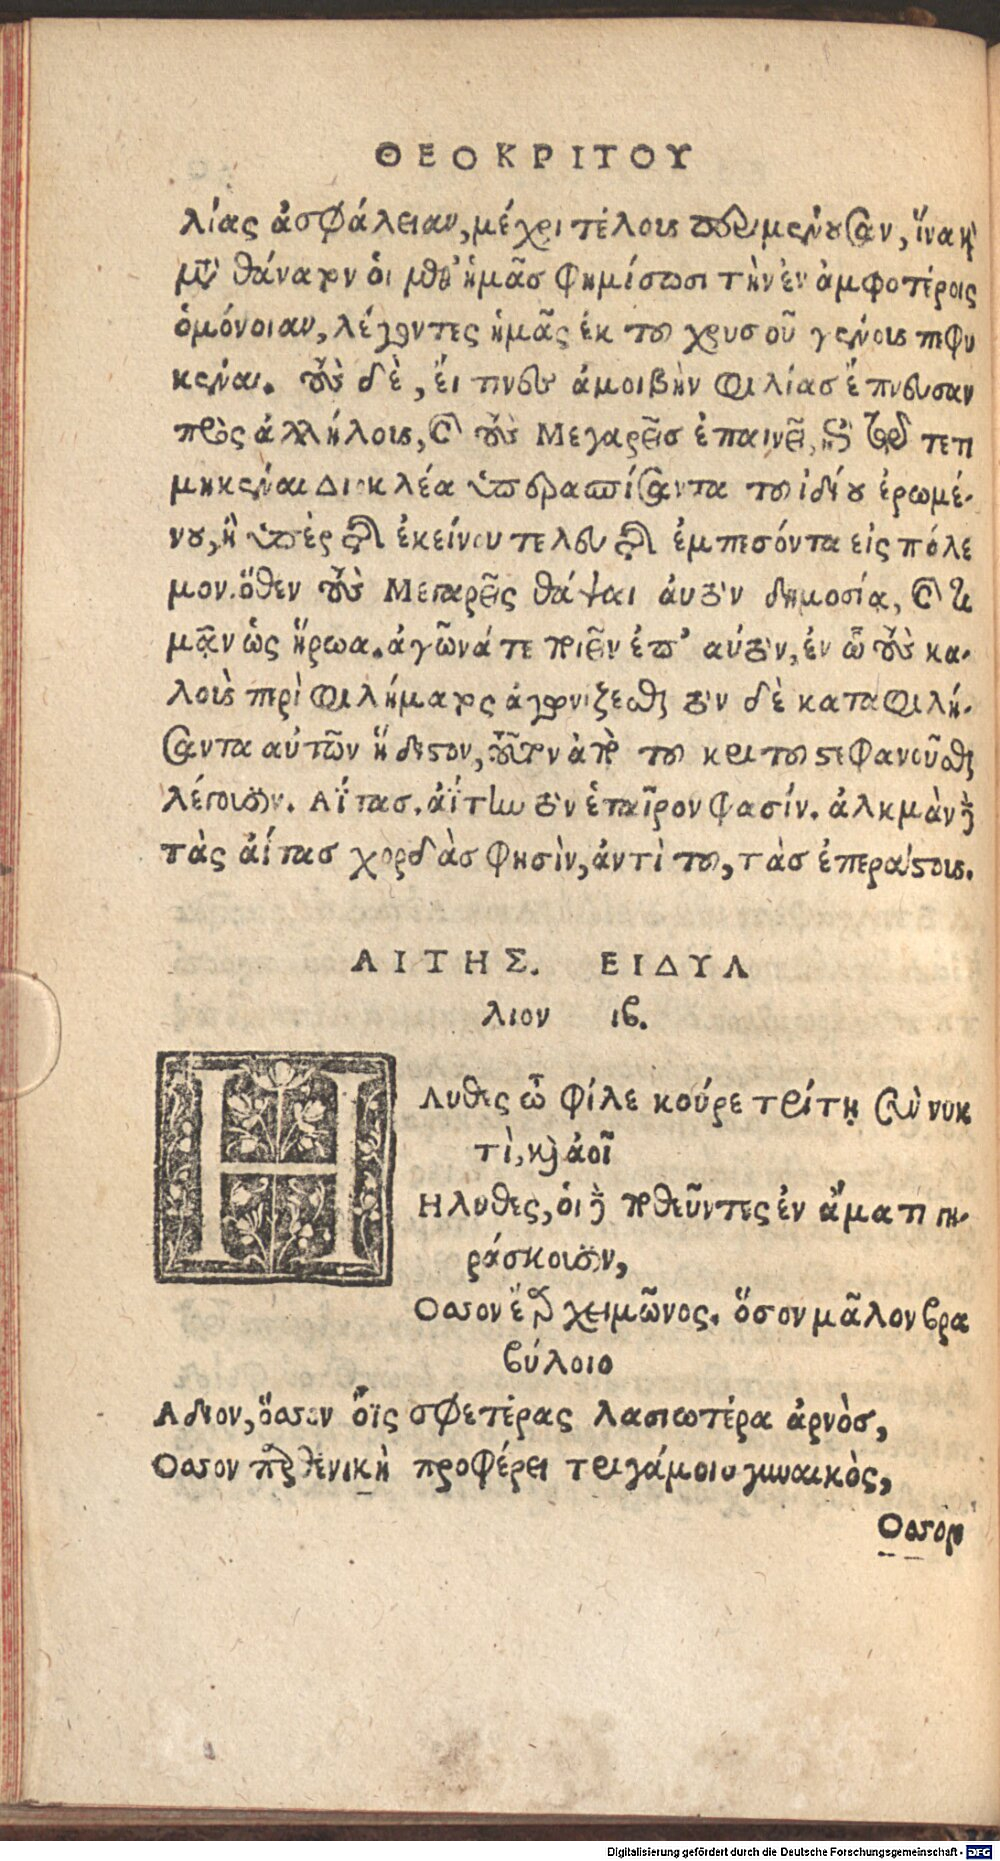 ΘΕΟΚΡΙΤΟΥ
λίας ἀσφάλειαν, μέχρι τέλους παραμενοῦσαν, ἵνα καὶ
μετὰ θάνατον οἱ μεθ' ἡμᾶσ φημίσωσι τὴν ἐν ἀμφοτέροις
ὁμόνοιαν, λέγοντες ἡμᾶς ἐκ τοῦ χρυσοῦ γένους πεφυ
κέναι. τοὺς δὲ, ἔι τινες ἀμοιβὴν φιλίασ ἔπνευσαν
πρὸς ἀλλήλους, καὶ τοὺς Μεγαρεῖσ ἐπαινεῖ, τετι
μηκέναι Διοκλέα ὑπερασπίσαντα τοῦ ἰδίου ἐρωμέ-
νου, ἢ ὑπὲρ ἐκείνου τελευτ ἐμπεσόντα εἰς πόλε
μον. ὅθεν τοὺς Μεγαρεῖς θάψαι ἀυτὸν δημοσίᾳ, καὶ τι
μᾷν ὡς ἥρωα. ἀγῶνά τε ποιεῖν ἐπ' αὐτὸν, ἐν ᾧ τοὺς κα-
λοὺς περὶ φιλήματος ἀγωνίζεσθαι τὸν δὲ καταφιλή-
σαντα αὐτῶν ἥδιστον, τοῦτον ἀπὸ τοῦ κριτοῦ στεφανοῦσθαι
λέγουσιν. Αἴτασ. ἀΐτην τὸν ἑταῖρον φασίν. ἀλκμὰν δὲ
τὰς ἀΐτασ χορδὰσ φησὶν, ἀντὶ τοῦ, τὰσ ἐπεράστους.
ΑΙΤΗΣ. ΕΙΔΥΛ
λιον ιβ.
ΗΛυθες ὦ φίλε κούρε τρίτῃ σὺν νυκ
τὶ, καὶ ἀοῖ
Ηλυθες, ὁι δὲ ποθεῦντες ἐν ἄματι γη-
ράσκουσιν,
Οσσον ἔαρ χειμῶνος. ὅσον μᾶλον βρα
βύλοιο
Αδιον, ὅσσον ὄϊς σφετέρας λασιωτέρα ἀρνὸς,
Οσσον παρθενικὴ προφέρει τριγάμοιο γυναικὸς,
Οσσον
Digitalisierung gefördert durch die Deutsche Forschungsgemeinschaft - DFG